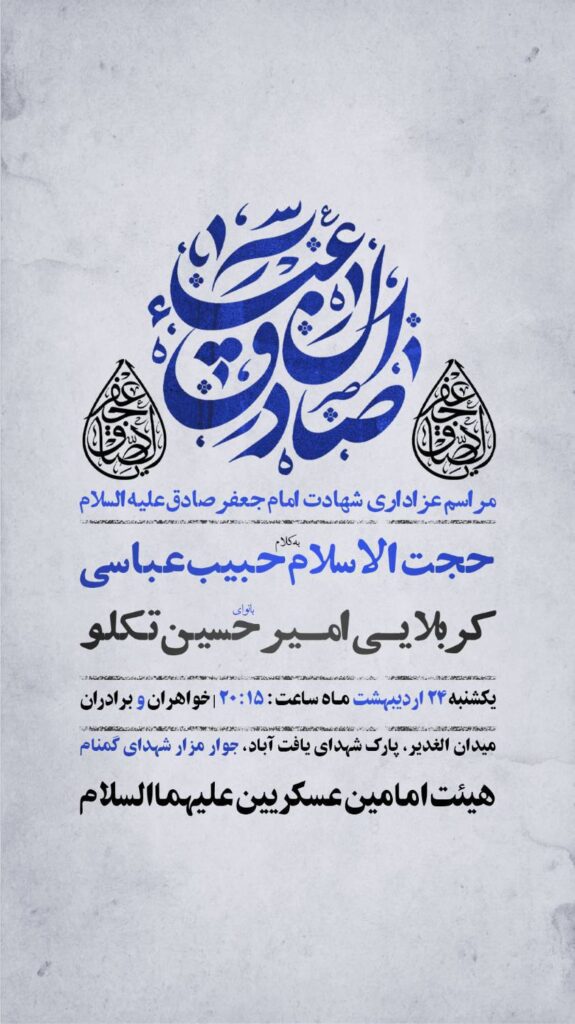 جعفر الصادق
جعفر الصادق
مراسم عزاداری شهادت امام جعفر صادق علیه السلام
به کلام
حجت الاسلام حبیب عباسی
بانوای
کربلایی امیر حسین تکلو
یکشنبه ۲۴ اردیبهشت ماه ساعت: ۲۰:۱۵ | خواهران و برادران
میدان الغدیر، پارک شهدای یافت آباد، جوار مزار شهدای گمنام
هیئت امامین عسکریین علیهما السلام